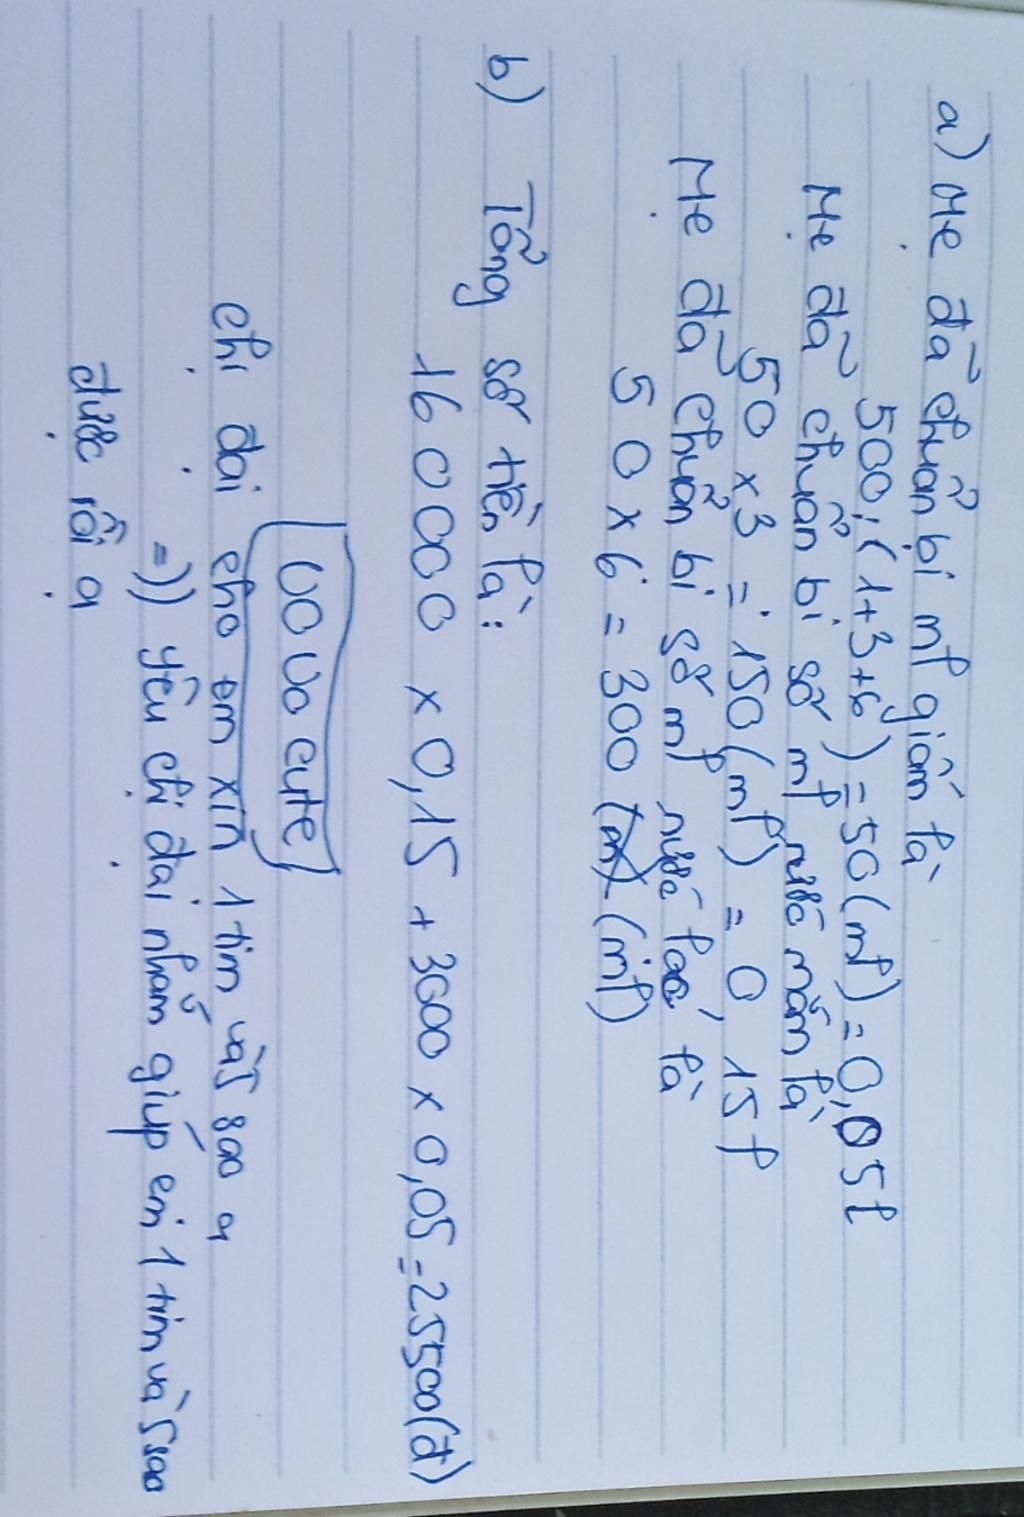 a) Mẹ đã chuẩn bị ml giấm là
500:(1+3+6)=50(ml)=0,05l
Mẹ đã chuẩn bị số ml nước mắm là
50 x 3 = 150(ml) = 0,15l
Mẹ đã chuẩn bị số ml nước lọc là
50 x 6 = 300 (ml)
b) Tổng số tiền là:
16 0000 x 0,15 + 3000 x 0,05 = 25500(đ)
UO UO cute
chị đại cho em xin 1 tim và 5 sao ạ
=)) yêu chị đại nhắm giúp em 1 tim và 5 sao
được rồi ạ